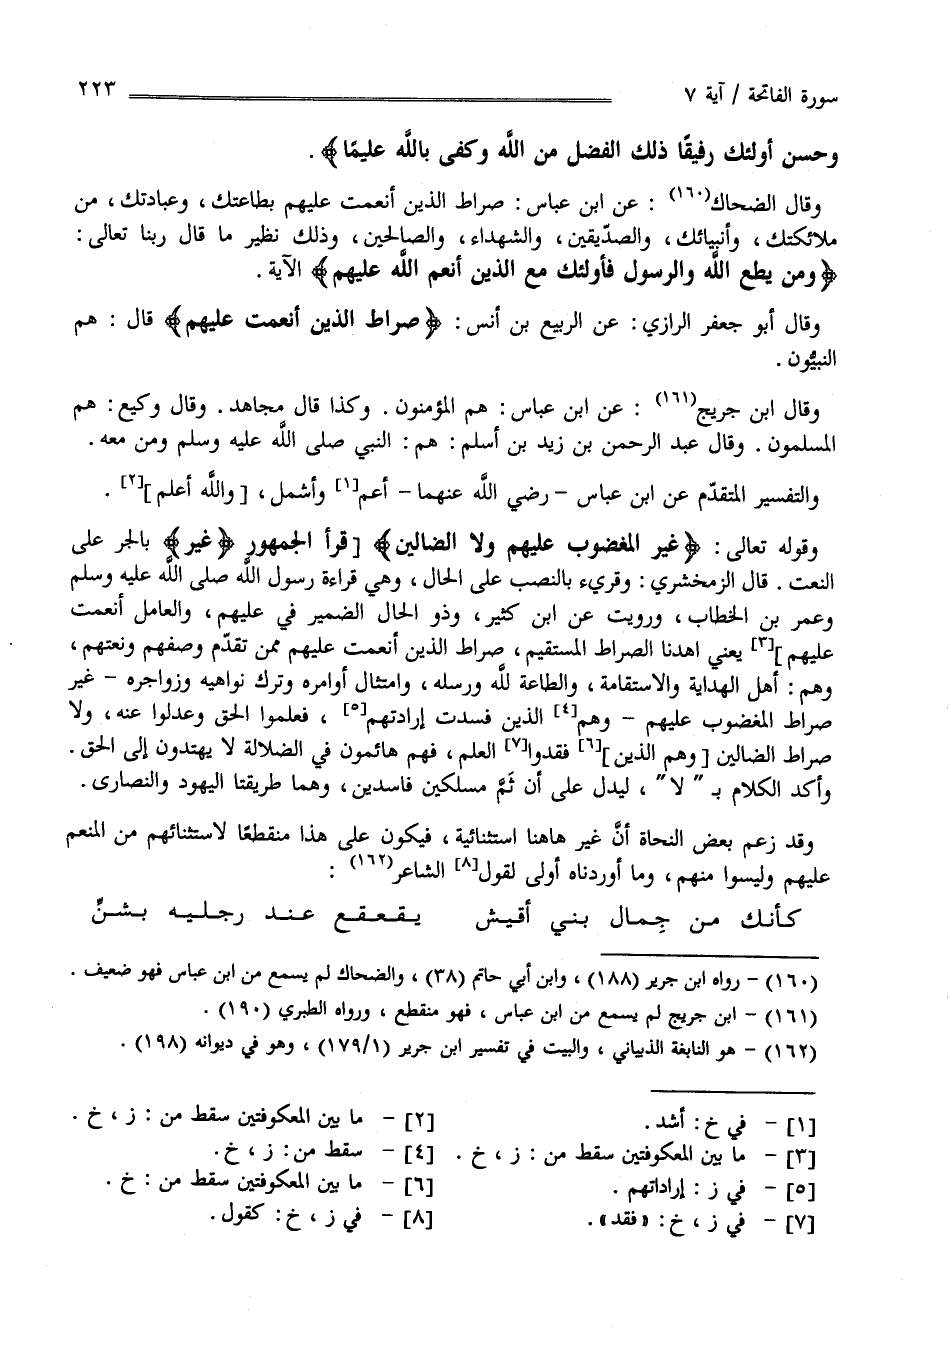 سورة الفاتحة / آية ٧
٢٢٣
وحسن أولئك رفيقًا ذلك الفضل من اللَّه وكفى باللَّه عليمًا﴾ .
وقال الضحاك(١٦٠) : عن ابن عباس : صراط الذين أنعمت عليهم بطاعتك ، وعبادتك ، من
ملائكتك ، وأنبيائك ، والصدّيقين ، والشهداء ، والصالحين ، وذلك نظير ما قال ربنا تعالى :
﴿ومن يطع اللَّه والرسول فأولئك مع الذين أنعم اللَّه عليهم﴾ الآية .
وقال أبو جعفر الرازي : عن الربيع بن أنس : ﴿صراط الذين أنعمت عليهم﴾ قال : هم
النبيُّون .
وقال ابن جريج(١٦١) : عن ابن عباس : هم المؤمنون . وكذا قال مجاهد . وقال وكيع : هم
المسلمون . وقال عبد الرحمن بن زيد بن أسلم : هم : النبي صلى اللَّه عليه وسلم ومن معه .
والتفسير المتقدّم عن ابن عباس – رضي اللَّه عنهما – أعم[١] وأشمل ، [والله أعلم][٢] .
وقوله تعالى : ﴿غير المغضوب عليهم ولا الضالين﴾ [قرأ الجمهور ﴿غير﴾ بالجر على
النعت . قال الزمخشري : وقريء بالنصب على الحال ، وهي قراءة رسول اللَّه صلى اللَّه عليه وسلم
وعمر بن الخطاب ، ورويت عن ابن كثير ، وذو الحال الضمير في عليهم ، والعامل أنعمت
عليهم][٣] يعني اهدنا الصراط المستقيم ، صراط الذين أنعمت عليهم ممن تقدّم وصفهم ونعتهم ،
وهم : أهل الهداية والاستقامة ، والطاعة للَّه ورسله ، وامتثال أوامره وترك نواهيه وزواجره – غير
صراط المغضوب عليهم – وهم[٤] الذين فسدت إرادتهم[٥] ، فعلموا الحق وعدلوا عنه ، ولا
صراط الضالين [وهم الذين][٦] فقدوا[٧] العلم ، فهم هائمون في الضلالة لا يهتدون إلى الحق .
وأكد الكلام بـ " لا " ، ليدل على أن ثَمَّ مسلكين فاسدين ، وهما طريقتا اليهود والنصارى .
وقد زعم بعض النحاة أنَّ غير هاهنا استثنائية ، فيكون على هذا منقطعًا لاستثنائهم من المنعم
عليهم وليسوا منهم ، وما أوردناه أولى لقول[٨] الشاعر(١٦٢) :
كأنك من جِمال بني أقيش يقعقع عند رجليه بشنِّ
(١٦٠) – رواه ابن جرير (١٨٨) ، وابن أبي حاتم (٣٨) ، والضحاك لم يسمع من ابن عباس فهو ضعيف .
(١٦١) – ابن جريج لم يسمع من ابن عباس ، فهو منقطع ، ورواه الطبري (١٩٠) .
(١٦٢) – هو النابغة الذبياني ، والبيت في تفسير ابن جرير (١٧٩/١) ، وهو في ديوانه (١٩٨) .
[١] – في خ : أشد .
[٢] – ما بين المعكوفتين سقط من : ز ، خ .
[٣] – ما بين المعكوفتين سقط من : ز ، خ .
[٤] – سقط من : ز ، خ .
[٥] – في ز : إراداتهم .
[٦] – ما بين المعكوفتين سقط من : خ .
[٧] – في ز ، خ : «فقد» .
[٨] – في ز ، خ : كقول .